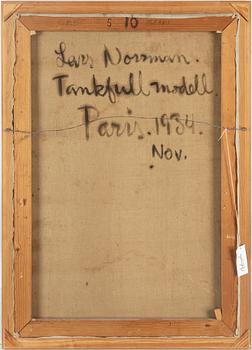 5 10
Lars Norrman.
Tankfull modell.
Paris. 1934.
Nov.